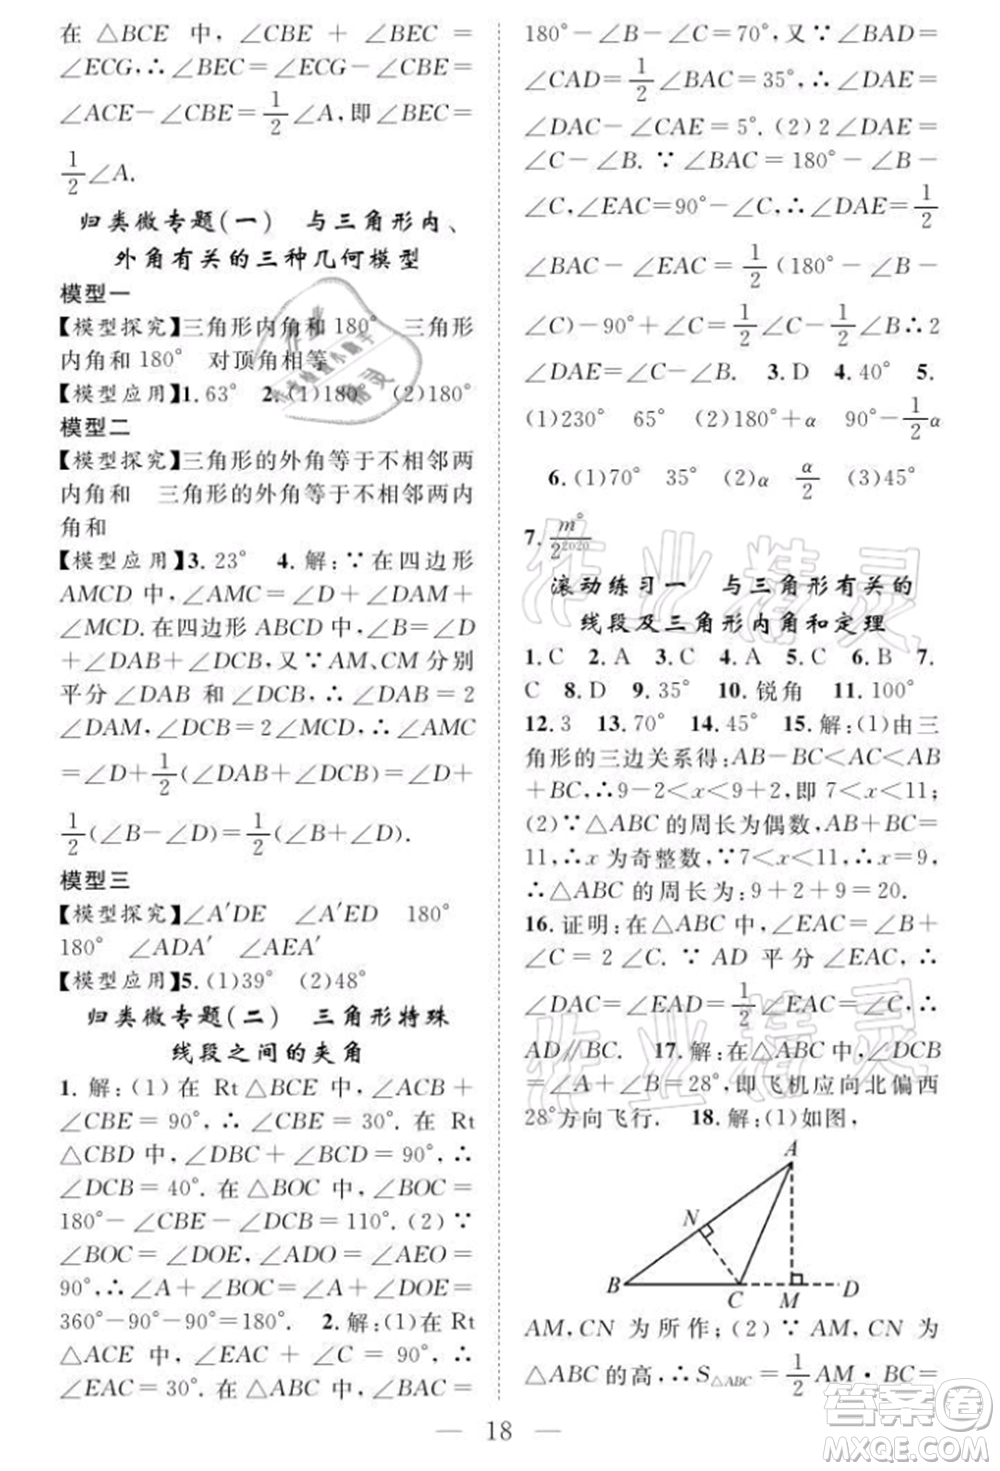 在 △BCE 中, ∠CBE + ∠BEC =
∠ECG, ∴ ∠BEC = ∠ECG − ∠CBE =
∠ACE − ∠CBE = 1/2 ∠A, 即 ∠BEC =
1/2 ∠A.
归类微专题(一) 与三角形内、
外角有关的三种几何模型
模型一
【模型探究】三角形内角和 180° 三角形
内角和 180° 对顶角相等
【模型应用】1. 63° 2. (1)180° (2)180°
模型二
【模型探究】三角形的外角等于不相邻两
内角和 三角形的外角等于不相邻两内
角和
【模型应用】3. 23° 4. 解: ∵ 在四边形
AMCD 中, ∠AMC = ∠D + ∠DAM +
∠MCD. 在四边形 ABCD 中, ∠B = ∠D
+ ∠DAB + ∠DCB, 又 ∵ AM, CM 分别
平分 ∠DAB 和 ∠DCB, ∴ ∠DAB = 2
∠DAM, ∠DCB = 2∠MCD, ∴ ∠AMC
= ∠D + 1/2(∠DAB + ∠DCB) = ∠D +
1/2(∠B − ∠D) = 1/2(∠B + ∠D).
模型三
【模型探究】∠A′DE ∠A′ED 180°
180° ∠ADA′ ∠AEA′
【模型应用】5. (1)39° (2)48°
归类微专题(二) 三角形特殊
线段之间的夹角
1. 解: (1) 在 Rt△BCE 中, ∠ACB +
∠CBE = 90°, ∴ ∠CBE = 30°. 在 Rt
△CBD 中, ∠DBC + ∠BCD = 90°, ∴
∠DCB = 40°. 在 △BOC 中, ∠BOC =
180° − ∠CBE − ∠DCB = 110°. (2) ∵
∠BOC = ∠DOE, ∠ADO = ∠AEO =
90°, ∴ ∠A + ∠BOC = ∠A + ∠DOE =
360° − 90° − 90° = 180°. 2. 解: (1)在 Rt
△ACE 中, ∠CAE + ∠C = 90°, ∴
∠EAC = 30°. 在 △ABC 中, ∠BAC =
180° − ∠B − ∠C = 70°, 又 ∵ ∠BAD =
∠CAD = 1/2 ∠BAC = 35°, ∴ ∠DAE =
∠DAC − ∠CAE = 5°. (2) 2∠DAE =
∠C − ∠B. ∵ ∠BAC = 180° − ∠B −
∠C, ∠EAC = 90° − ∠C, ∴ ∠DAE = 1/2
∠BAC − ∠EAC = 1/2(180° − ∠B −
∠C) − 90° + ∠C = 1/2∠C − 1/2∠B ∴ 2
∠DAE = ∠C − ∠B. 3. D 4. 40° 5.
(1)230° 65° (2)180° + α 90° − 1/2α
6. (1)70° 35° (2)α α/2 (3)45°
7. m°/2^2020
滚动练习一 与三角形有关的
线段及三角形内角和定理
1. C 2. A 3. C 4. A 5. C 6. B 7.
C 8. D 9. 35° 10. 锐角 11. 100°
12. 3 13. 70° 14. 45° 15. 解: (1)由三
角形的三边关系得: AB − BC < AC < AB
+ BC, ∴ 9 − 2 < x < 9 + 2, 即 7 < x < 11;
(2) ∵ △ABC 的周长为偶数, AB + BC =
11, ∴ x 为奇整数, ∵ 7 < x < 11, ∴ x = 9,
∴ △ABC 的周长为: 9 + 2 + 9 = 20.
16. 证明: 在 △ABC 中, ∠EAC = ∠B +
∠C = 2∠C. ∵ AD 平分 ∠EAC, ∴
∠DAC = ∠EAD = 1/2 ∠EAC = ∠C, ∴
AD∥BC. 17. 解: 在 △ABC 中, ∠A =
∠DBC − ∠B = 28°, 即飞机应向北偏西
28°方向飞行. 18. 解: (1)如图,
A
N
B C M D
AM, CN 为所作; (2) ∵ AM, CN 为
△ABC 的高, ∴ S△ABC = 1/2 AM · BC =
18
作业精灵
作业精灵
答案圈
MXQE.COM